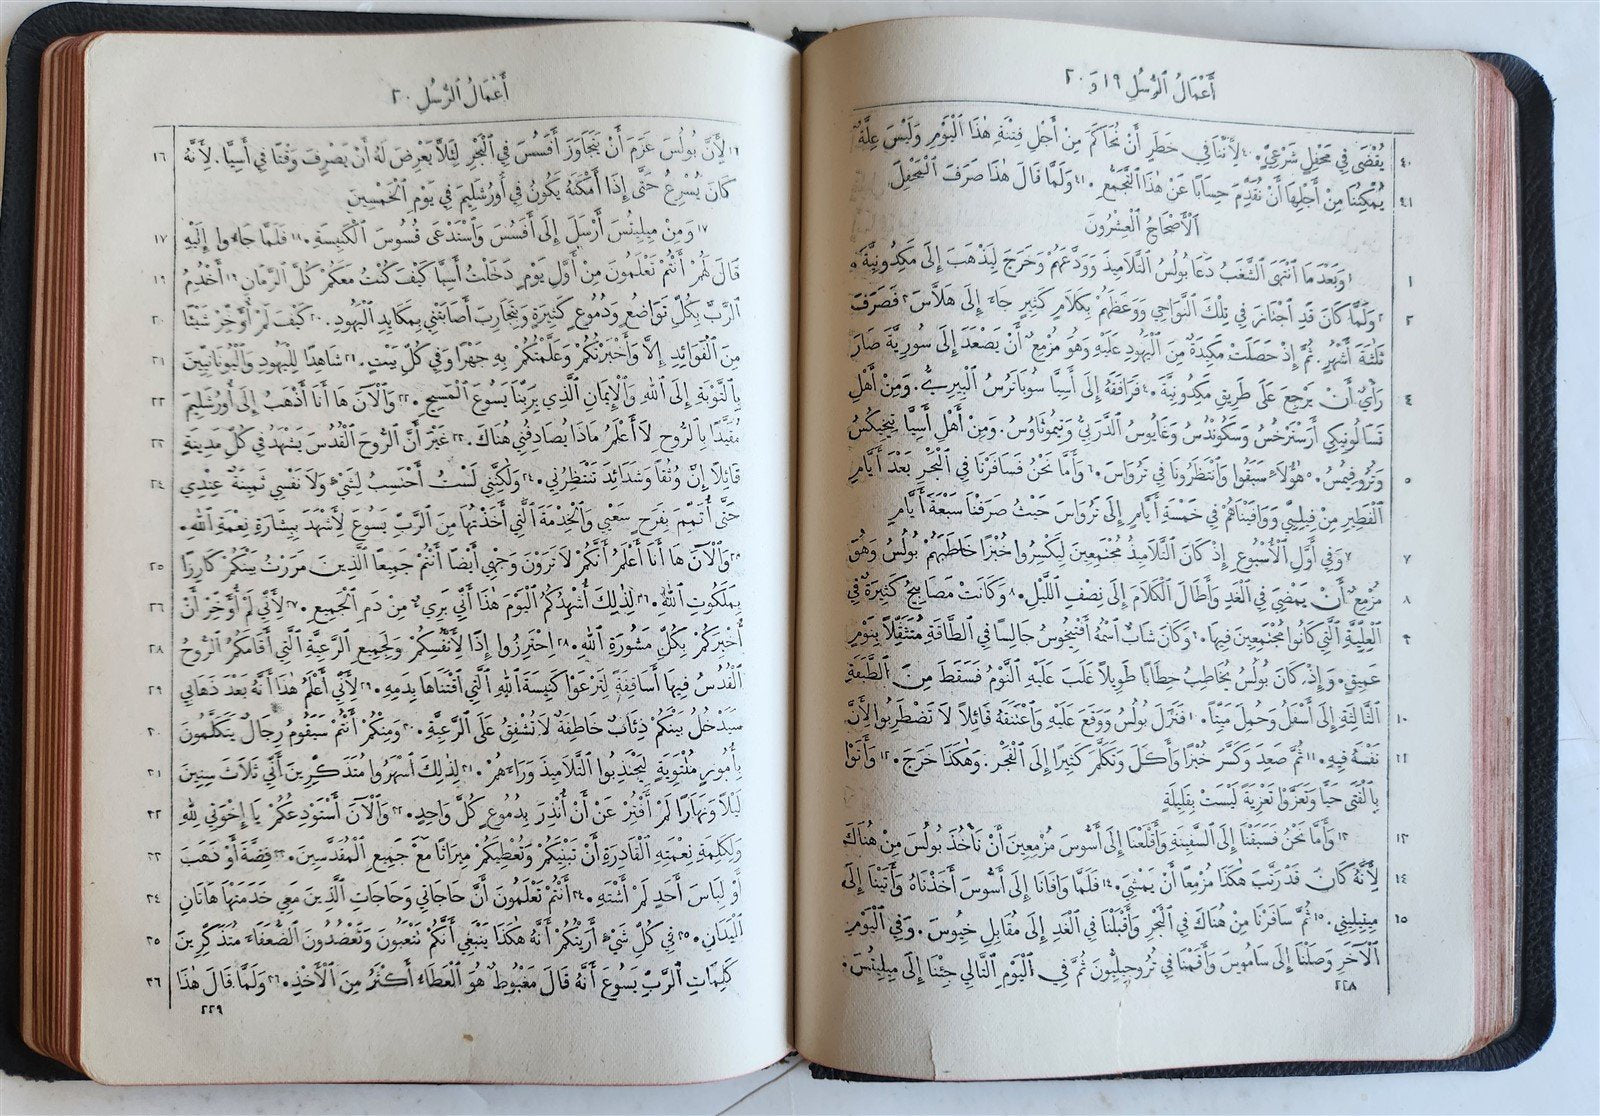 أَعْمَالُ ٱلرُّسُلِ ١٩ وَ ٢٠
٤٠ يُقْضَى فِي مَحْفِلٍ شَرْعِيٍّ. ٤٠لِأَنَّنَا فِي خَطَرٍ أَنْ نُحَاكَمَ مِنْ أَجْلِ فِتْنَةِ هٰذَا ٱلْيَوْمِ وَلَيْسَ عِلَّةٌ
٤١ يُمْكِنُنَا مِنْ أَجْلِهَا أَنْ نُقَدِّمَ حِسَابًا عَنْ هٰذَا ٱلتَّجَمُّعِ. ٤١وَلَمَّا قَالَ هٰذَا صَرَفَ ٱلْمَحْفِلَ
اَلْأَصْحَاحُ ٱلْعِشْرُونَ
١ ١وَبَعْدَمَا ٱنْتَهَى ٱلشَّغَبُ دَعَا بُولُسُ ٱلتَّلَامِيذَ وَوَدَّعَهُمْ وَخَرَجَ لِيَذْهَبَ إِلَى مَكِدُونِيَّةَ.
٢ ٢وَلَمَّا كَانَ قَدِ ٱجْتَازَ فِي تِلْكَ ٱلنَّوَاحِي وَوَعَظَهُمْ بِكَلَامٍ كَثِيرٍ جَاءَ إِلَى هَلَّاسَ ٣فَصَرَفَ
ثَلٰثَةَ أَشْهُرٍ. ثُمَّ إِذْ حَصَلَتْ مَكِيدَةٌ مِنَ ٱلْيَهُودِ عَلَيْهِ وَهُوَ مُزْمِعٌ أَنْ يَصْعَدَ إِلَى سُورِيَّةَ صَارَ
٤ رَأْيٌ أَنْ يَرْجِعَ عَلَى طَرِيقِ مَكِدُونِيَّةَ. ٤فَرَافَقَهُ إِلَى أَسِيَّا سُوبَاتَرُسُ ٱلْبِيرِيُّ. وَمِنْ أَهْلِ
تَسَالُونِيكِي أَرِسْتَرْخُسُ وَسَكُونْدُسُ وَغَايُوسُ ٱلدَّرْبِيُّ وَتِيمُوثَاوُسُ. وَمِنْ أَهْلِ أَسِيَّا تِيخِيكُسُ
٥ وَتُرُوفِيمُسُ. ٥هٰؤُلَاءِ سَبَقُوا وَٱنْتَظَرُونَا فِي تَرُوَاسَ. ٦وَأَمَّا نَحْنُ فَسَافَرْنَا فِي ٱلْبَحْرِ بَعْدَ أَيَّامِ
ٱلْفَطِيرِ مِنْ فِيلِبِّي وَوَافَيْنَاهُمْ فِي خَمْسَةِ أَيَّامٍ إِلَى تَرُوَاسَ حَيْثُ صَرَفْنَا سَبْعَةَ أَيَّامٍ
٧ ٧وَفِي أَوَّلِ ٱلْأُسْبُوعِ إِذْ كَانَ ٱلتَّلَامِيذُ مُجْتَمِعِينَ لِيَكْسِرُوا خُبْزًا خَاطَبَهُمْ بُولُسُ وَهُوَ
٨ مُزْمِعٌ أَنْ يَمْضِيَ فِي ٱلْغَدِ وَأَطَالَ ٱلْكَلَامَ إِلَى نِصْفِ ٱللَّيْلِ. ٨وَكَانَتْ مَصَابِيحُ كَثِيرَةٌ فِي
٩ ٱلْعُلِّيَّةِ ٱلَّتِي كَانُوا مُجْتَمِعِينَ فِيهَا. ٩وَكَانَ شَابٌّ ٱسْمُهُ أَفْتِيخُوسُ جَالِسًا فِي ٱلطَّاقَةِ مُتَثَقِّلًا بِنَوْمٍ
عَمِيقٍ. وَإِذْ كَانَ بُولُسُ يُخَاطِبُ خِطَابًا طَوِيلًا غَلَبَ عَلَيْهِ ٱلنَّوْمُ فَسَقَطَ مِنَ ٱلطَّبَقَةِ
١٠ ٱلثَّالِثَةِ إِلَى أَسْفَلُ وَحُمِلَ مَيْتًا. ١٠فَنَزَلَ بُولُسُ وَوَقَعَ عَلَيْهِ وَٱعْتَنَقَهُ قَائِلًا لَا تَضْطَرِبُوا لِأَنَّ
١١ نَفْسَهُ فِيهِ. ١١ثُمَّ صَعِدَ وَكَسَّرَ خُبْزًا وَأَكَلَ وَتَكَلَّمَ كَثِيرًا إِلَى ٱلْفَجْرِ. وَهٰكَذَا خَرَجَ. ١٢وَأَتَوْا
بِٱلْفَتَى حَيًّا وَتَعَزَّوْا تَعْزِيَةً لَيْسَتْ بِقَلِيلَةٍ
١٣ ١٣وَأَمَّا نَحْنُ فَسَبَقْنَا إِلَى ٱلسَّفِينَةِ وَأَقْلَعْنَا إِلَى أَسُّوسَ مُزْمِعِينَ أَنْ نَأْخُذَ بُولُسَ مِنْ هُنَاكَ
١٤ لِأَنَّهُ كَانَ قَدْ رَتَّبَ هٰكَذَا مُزْمِعًا أَنْ يَمْشِيَ. ١٤فَلَمَّا وَافَانَا إِلَى أَسُّوسَ أَخَذْنَاهُ وَأَتَيْنَا إِلَى
١٥ مِيتِيلِينِي. ١٥ثُمَّ سَافَرْنَا مِنْ هُنَاكَ فِي ٱلْبَحْرِ وَأَقْبَلْنَا فِي ٱلْغَدِ إِلَى مُقَابِلِ خِيُوسَ. وَفِي ٱلْيَوْمِ
ٱلْآخَرِ وَصَلْنَا إِلَى سَامُوسَ وَأَقَمْنَا فِي تُرُوجِيلِيُّونَ ثُمَّ فِي ٱلْيَوْمِ ٱلتَّالِي جِئْنَا إِلَى مِيلِيتُسَ.
٢٢٨
أَعْمَالُ ٱلرُّسُلِ ٢٠
١٦ ١٦لِأَنَّ بُولُسَ عَزَمَ أَنْ يَتَجَاوَزَ أَفَسُسَ فِي ٱلْبَحْرِ لِئَلَّا يَعْرِضَ لَهُ أَنْ يَصْرِفَ وَقْتًا فِي أَسِيَّا. لِأَنَّهُ
كَانَ يُسْرِعُ حَتَّى إِذَا أَمْكَنَهُ يَكُونُ فِي أُورُشَلِيمَ فِي يَوْمِ ٱلْخَمْسِينَ
١٧ ١٧وَمِنْ مِيلِيتُسَ أَرْسَلَ إِلَى أَفَسُسَ وَٱسْتَدْعَى قُسُوسَ ٱلْكَنِيسَةِ. ١٨فَلَمَّا جَاءُوا إِلَيْهِ
١٩ قَالَ لَهُمْ أَنْتُمْ تَعْلَمُونَ مِنْ أَوَّلِ يَوْمٍ دَخَلْتُ أَسِيَّا كَيْفَ كُنْتُ مَعَكُمْ كُلَّ ٱلزَّمَانِ ١٩أَخْدِمُ
٢٠ ٱلرَّبَّ بِكُلِّ تَوَاضُعٍ وَدُمُوعٍ كَثِيرَةٍ وَبِتَجَارِبَ أَصَابَتْنِي بِمَكَايِدِ ٱلْيَهُودِ. ٢٠كَيْفَ لَمْ أُؤَخِّرْ شَيْئًا
٢١ مِنَ ٱلْفَوَائِدِ إِلَّا وَأَخْبَرْتُكُمْ وَعَلَّمْتُكُمْ بِهِ جَهْرًا وَفِي كُلِّ بَيْتٍ. ٢١شَاهِدًا لِلْيَهُودِ وَٱلْيُونَانِيِّينَ
٢٢ بِٱلتَّوْبَةِ إِلَى ٱللهِ وَٱلْإِيمَانِ ٱلَّذِي بِرَبِّنَا يَسُوعَ ٱلْمَسِيحِ. ٢٢وَٱلْآنَ هَا أَنَا أَذْهَبُ إِلَى أُورُشَلِيمَ
٢٣ مُقَيَّدًا بِٱلرُّوحِ لَا أَعْلَمُ مَاذَا يُصَادِفُنِي هُنَاكَ. ٢٣غَيْرَ أَنَّ ٱلرُّوحَ ٱلْقُدُسَ يَشْهَدُ فِي كُلِّ مَدِينَةٍ
٢٤ قَائِلًا إِنَّ وُثُقًا وَشَدَائِدَ تَنْتَظِرُنِي. ٢٤وَلٰكِنَّنِي لَسْتُ أَحْتَسِبُ لِشَيْءٍ وَلَا نَفْسِي ثَمِينَةٌ عِنْدِي
حَتَّى أُتَمِّمَ بِفَرَحٍ سَعْيِي وَٱلْخِدْمَةَ ٱلَّتِي أَخَذْتُهَا مِنَ ٱلرَّبِّ يَسُوعَ لِأَشْهَدَ بِبِشَارَةِ نِعْمَةِ ٱللهِ.
٢٥ ٢٥وَٱلْآنَ هَا أَنَا أَعْلَمُ أَنَّكُمْ لَا تَرَوْنَ وَجْهِي أَيْضًا أَنْتُمْ جَمِيعًا ٱلَّذِينَ مَرَرْتُ بَيْنَكُمْ كَارِزًا
٢٦ بِمَلَكُوتِ ٱللهِ. ٢٦لِذٰلِكَ أُشْهِدُكُمُ ٱلْيَوْمَ هٰذَا أَنِّي بَرِيءٌ مِنْ دَمِ ٱلْجَمِيعِ. ٢٧لِأَنِّي لَمْ أُؤَخِّرْ أَنْ
٢٨ أُخْبِرَكُمْ بِكُلِّ مَشُورَةِ ٱللهِ. ٢٨اِحْتَرِزُوا إِذًا لِأَنْفُسِكُمْ وَلِجَمِيعِ ٱلرَّعِيَّةِ ٱلَّتِي أَقَامَكُمُ ٱلرُّوحُ
٢٩ ٱلْقُدُسُ فِيهَا أَسَاقِفَةً لِتَرْعَوْا كَنِيسَةَ ٱللهِ ٱلَّتِي ٱقْتَنَاهَا بِدَمِهِ. ٢٩لِأَنِّي أَعْلَمُ هٰذَا أَنَّهُ بَعْدَ ذَهَابِي
٣٠ سَيَدْخُلُ بَيْنَكُمْ ذِئَابٌ خَاطِفَةٌ لَا تُشْفِقُ عَلَى ٱلرَّعِيَّةِ. ٣٠وَمِنْكُمْ أَنْتُمْ سَيَقُومُ رِجَالٌ يَتَكَلَّمُونَ
٣١ بِأُمُورٍ مُلْتَوِيَةٍ لِيَجْتَذِبُوا ٱلتَّلَامِيذَ وَرَاءَهُمْ. ٣١لِذٰلِكَ ٱسْهَرُوا مُتَذَكِّرِينَ أَنِّي ثَلَاثَ سِنِينَ
٣٢ لَيْلًا وَنَهَارًا لَمْ أَفْتُرْ عَنْ أَنْ أُنْذِرَ بِدُمُوعٍ كُلَّ وَاحِدٍ. ٣٢وَٱلْآنَ أَسْتَوْدِعُكُمْ يَا إِخْوَتِي لِلهِ
٣٣ وَلِكَلِمَةِ نِعْمَتِهِ ٱلْقَادِرَةِ أَنْ تَبْنِيَكُمْ وَتُعْطِيَكُمْ مِيرَاثًا مَعَ جَمِيعِ ٱلْمُقَدَّسِينَ. ٣٣فِضَّةَ أَوْ ذَهَبَ
٣٤ أَوْ لِبَاسَ أَحَدٍ لَمْ أَشْتَهِ. ٣٤أَنْتُمْ تَعْلَمُونَ أَنَّ حَاجَاتِي وَحَاجَاتِ ٱلَّذِينَ مَعِي خَدَمَتْهَا هَاتَانِ
٣٥ ٱلْيَدَانِ. ٣٥فِي كُلِّ شَيْءٍ أَرَيْتُكُمْ أَنَّهُ هٰكَذَا يَنْبَغِي أَنَّكُمْ تَتْعَبُونَ وَتَعْضُدُونَ ٱلضُّعَفَاءَ مُتَذَكِّرِينَ
٣٦ كَلِمَاتِ ٱلرَّبِّ يَسُوعَ أَنَّهُ قَالَ مَغْبُوطٌ هُوَ ٱلْعَطَاءُ أَكْثَرُ مِنَ ٱلْأَخْذِ. ٣٦وَلَمَّا قَالَ هٰذَا
٢٢٩